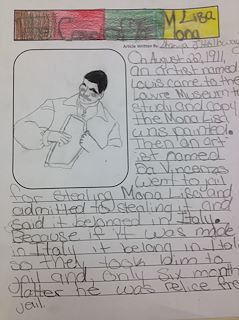 The Case of the Mona Lisa
Article Written By:
On August 20, 1911,
an artist named
Louis came to the
Louvre Museum to
study and copy
the Mona Lisa
was painted.
Then an art
ist named
Da Vincenzo
went to jail
for stealing Mona Lisa and
admitted to stealing it and
said it belonged in Italy.
Because if it was made
in Itali it belong in Itali
so they took him to
jail and only six month
latter he was relice fre
jail.